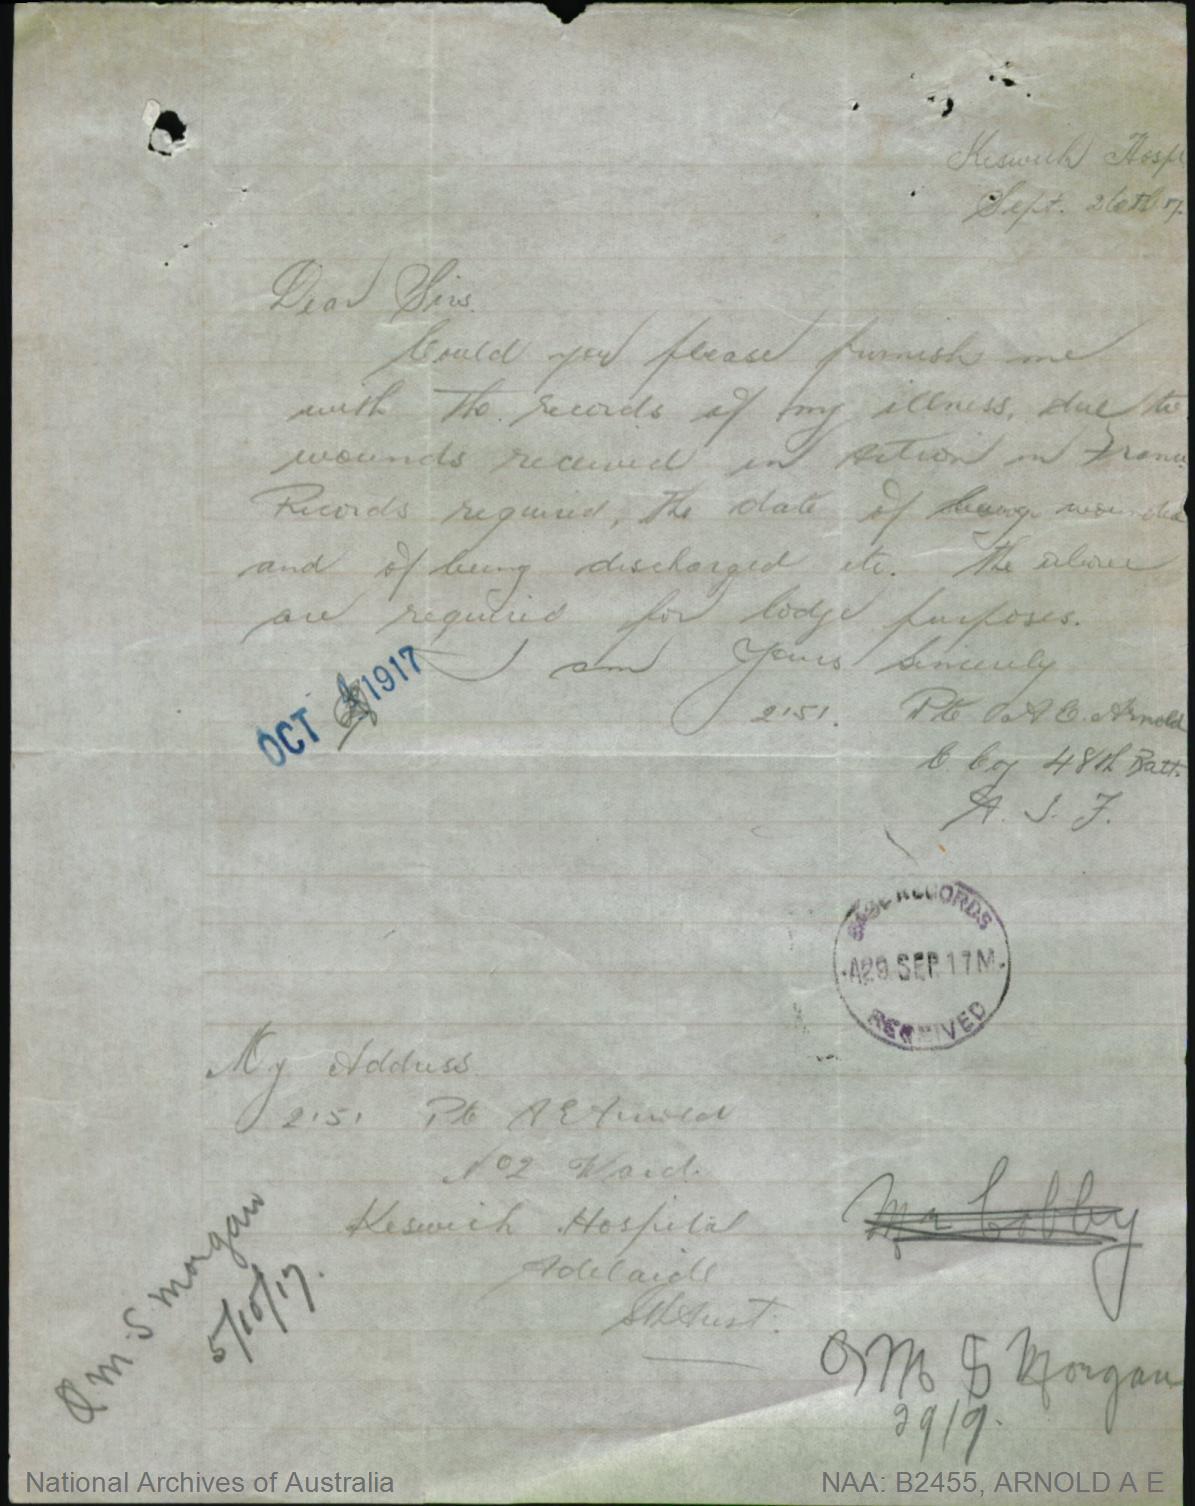 Keswick Hosp
Sept. 26th 17.
Dear Sirs.
Could you please furnish me
with the records of my illness, due to
wounds received in action in France
Records required, the date of being wounded
and of being discharged etc. The above
are required for lodge purposes.
I am Yours sincerely
OCT 1917
2151. Pte A E. Arnold
C. Coy 48th Batt.
A. I. F.
BASE RECORDS
A29 SEP. 17M
RECEIVED
My Address
2151 Pte A E Arnold
No 2 Ward.
Keswick Hospital
Adelaide
Sth Aust.
Mr Cobby
Q M S Morgan
5/10/17.
Q M S Morgan
29/9.
National Archives of Australia
NAA: B2455, ARNOLD A E